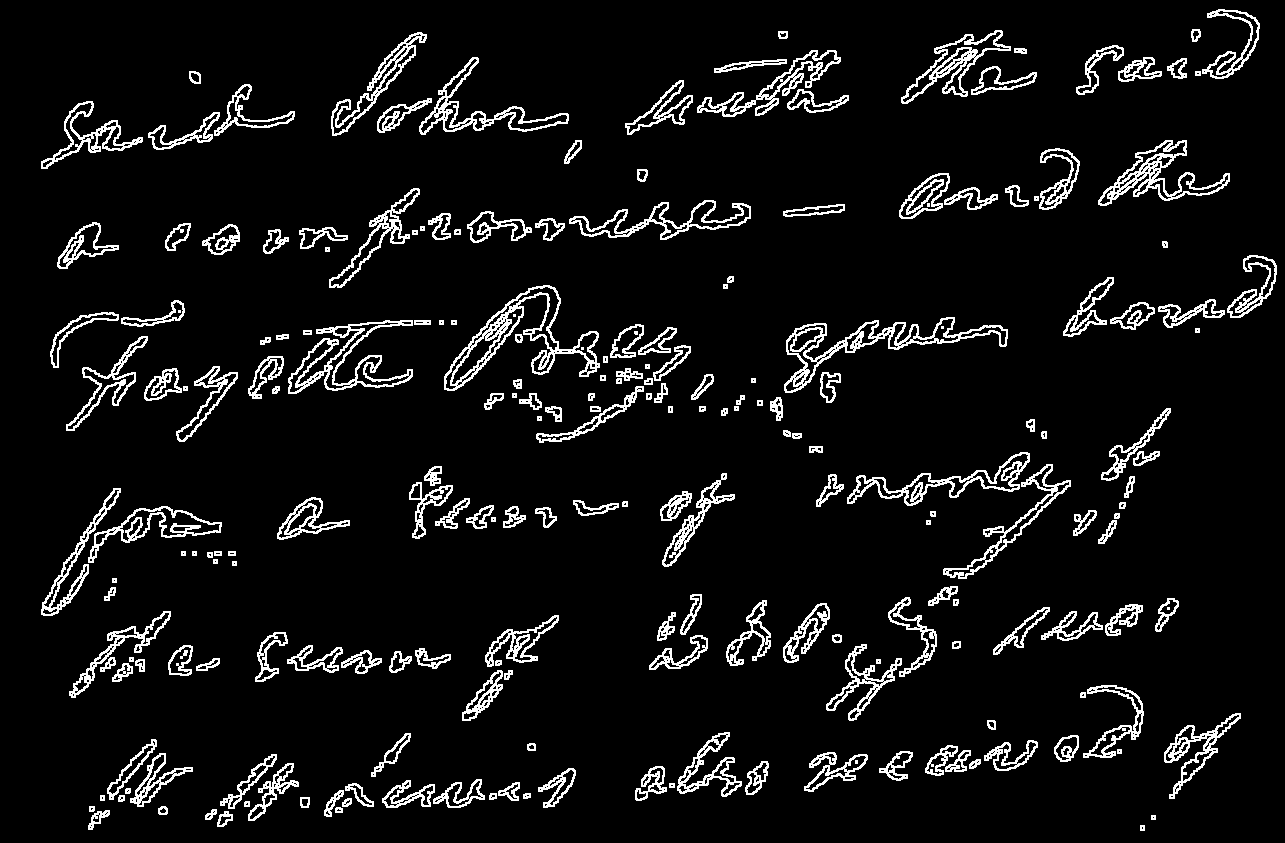 said John, with the said
a compromise — and the
Fayette Posey, gave bond
for a sum of money, of
the sum of
Lewis also received of